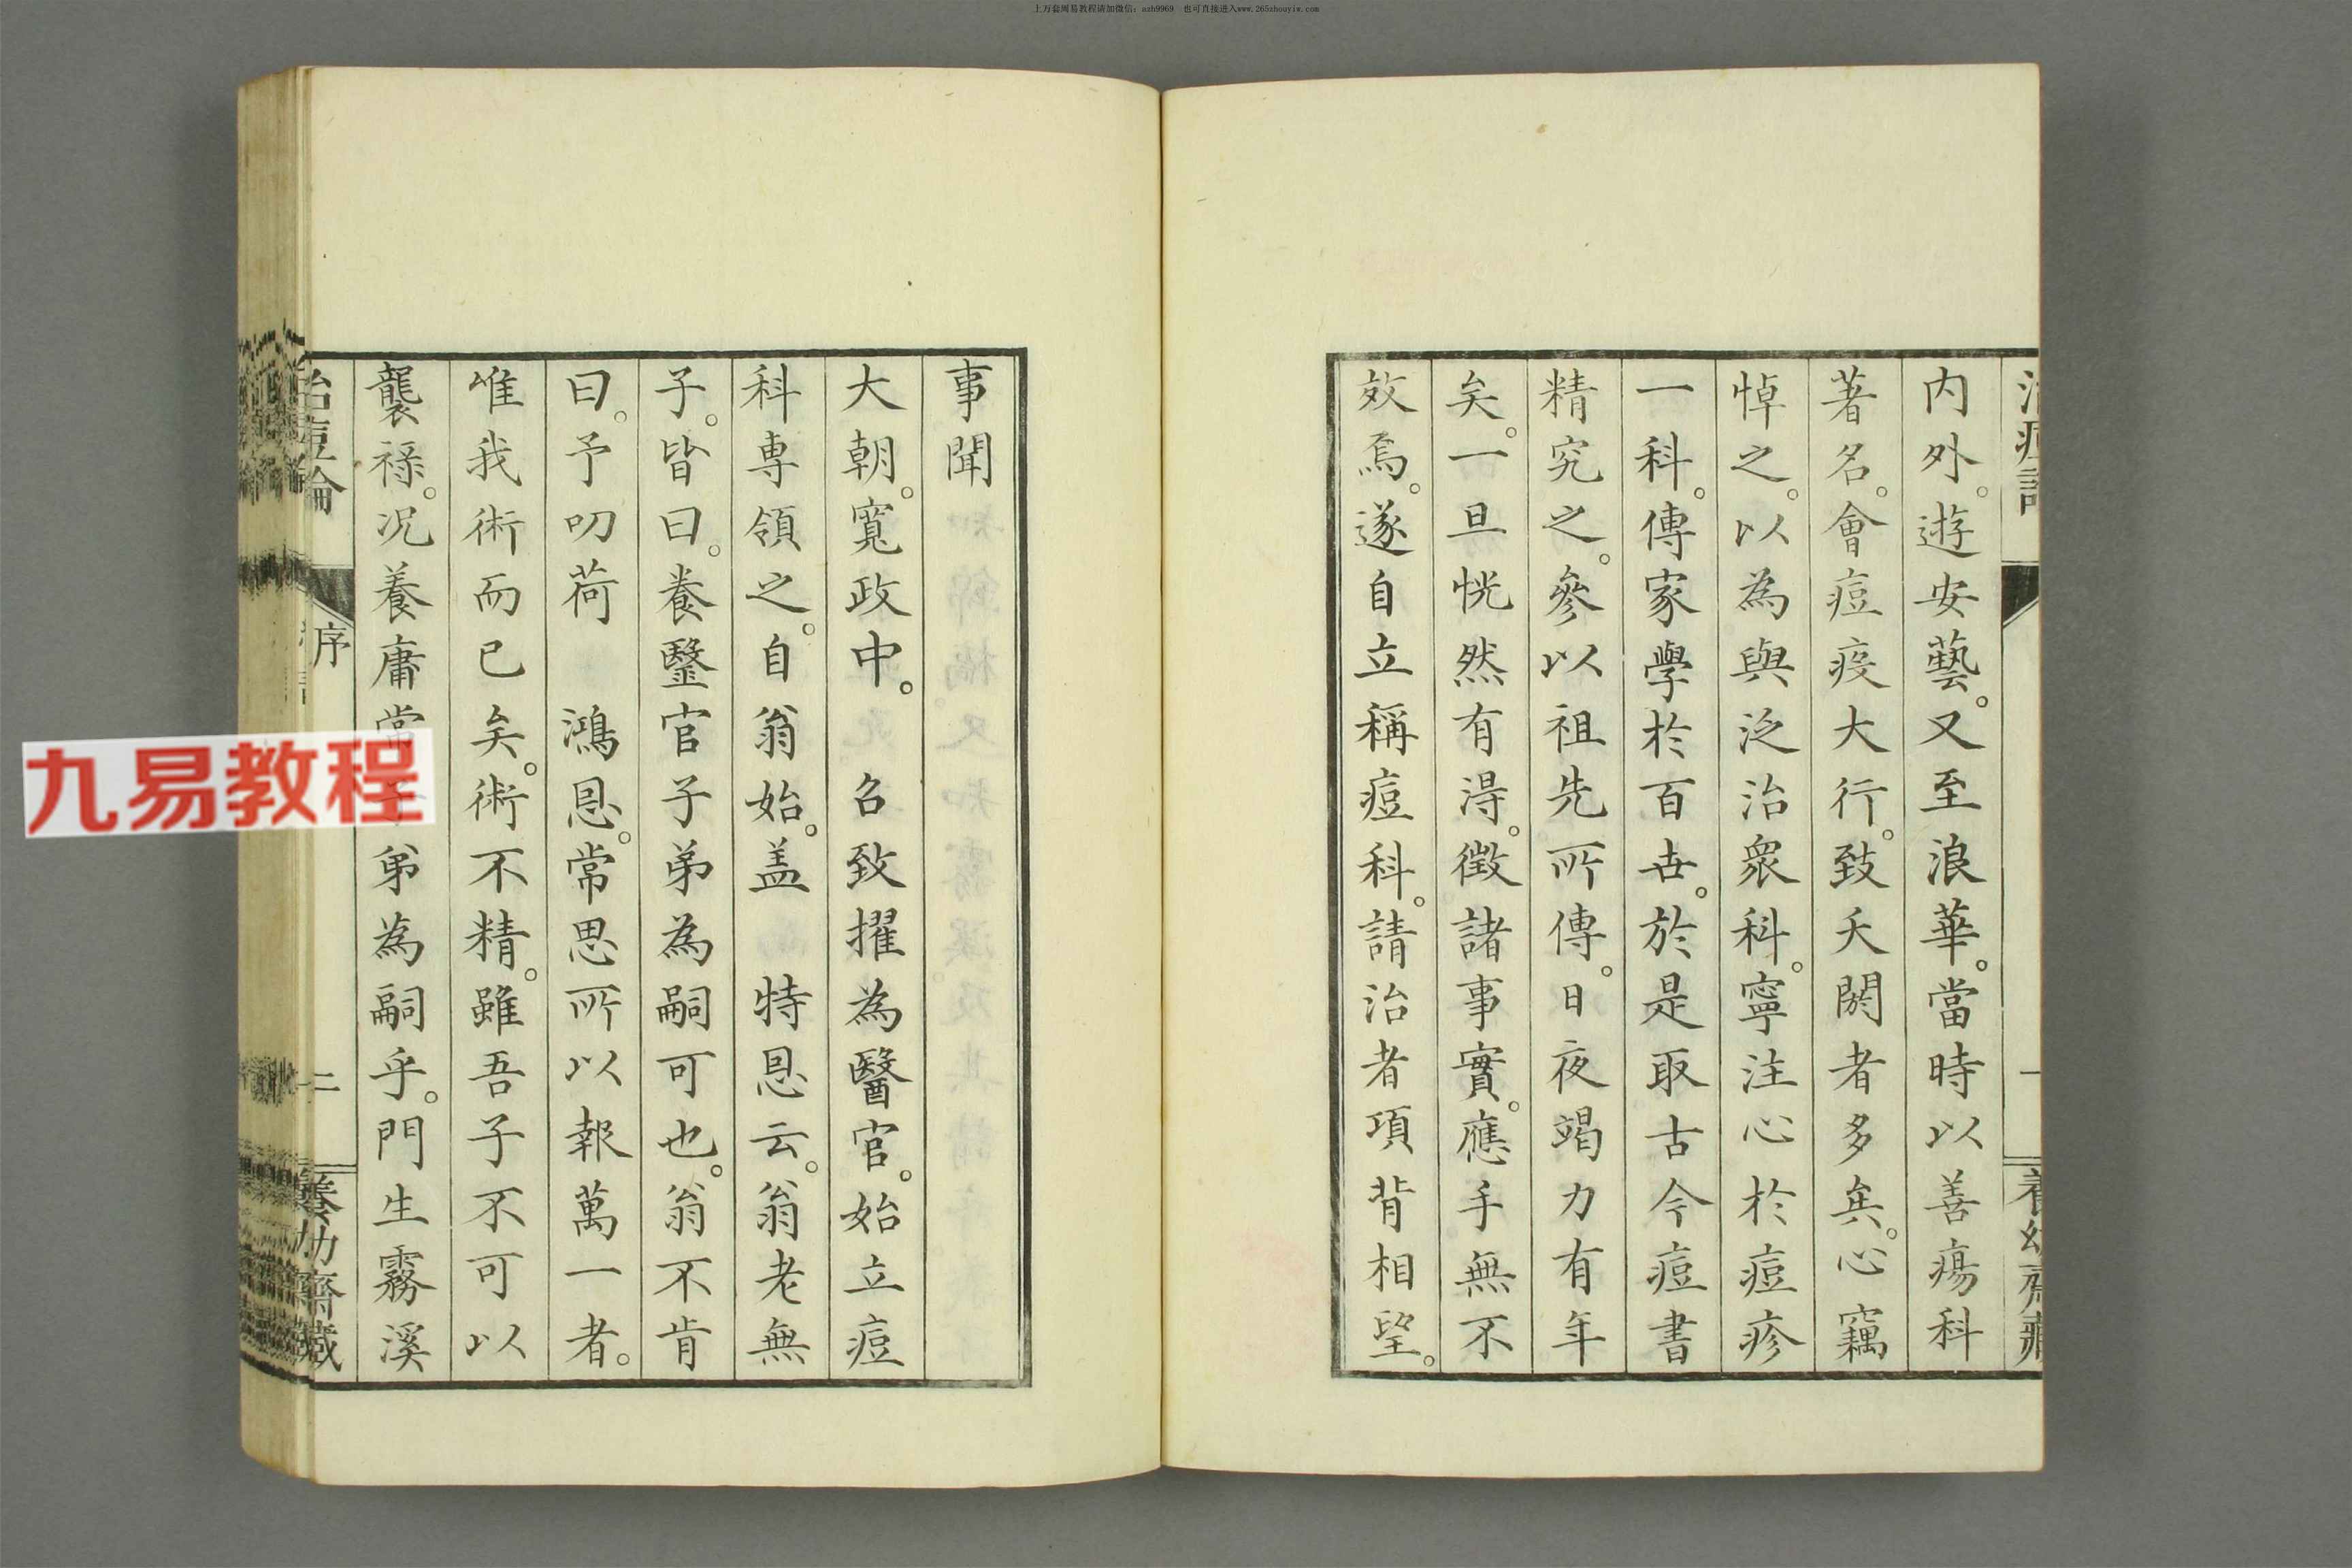 上万套周易教程请加微信：azh9969　也可直接进入www.265zhouyiw.com
内外。遊安藝。又至浪華。當時以善瘍科
著名。會痘疫大行。致夭閼者多矣。心竊
悼之。以為與泛治衆科。寧注心於痘疹
一科。傳家學於百世。於是取古今痘書
精究之。參以祖先所傳。日夜竭力有年
矣。一旦恍然有淂。徵諸事實。應手無不
效焉。遂自立稱痘科。請治者項背相望。
事聞
大朝。寬政中。　召致擢為醫官。始立痘
科專領之。自翁始。盖　特恩云。翁老無
子。皆曰。養毉官子弟為嗣可也。翁不肯
曰。予叨荷　鴻恩。常思所以報萬一者。
唯我術而已矣。術不精。雖吾子不可以
襲祿。况養庸常子弟為嗣乎。門生霧溪
治痘論　序　二　養幼齋藏
九易教程